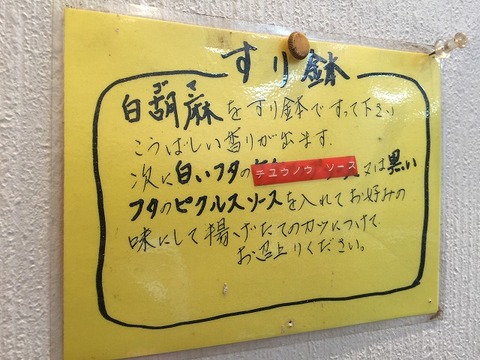 すり鉢
白胡麻をすり鉢ですって下さい
ゴマ
こうばしい香りが出ます.
次に白いフタの チユウノウ ソース マタは黒い
フタのピクルスソースを入れてお好みの
味にして揚げたてのカツにつけて
お召上りください。